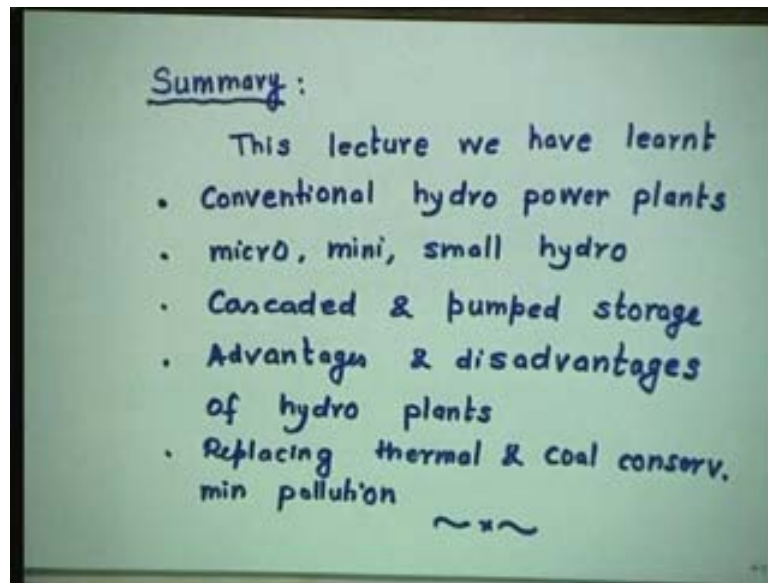 Summary :
This lecture we have learnt
• Conventional hydro power plants
• micro, mini, small hydro
• Cascaded & pumped storage
• Advantages & disadvantages
of hydro plants
• Replacing thermal & coal conserv.
min pollution
~x~